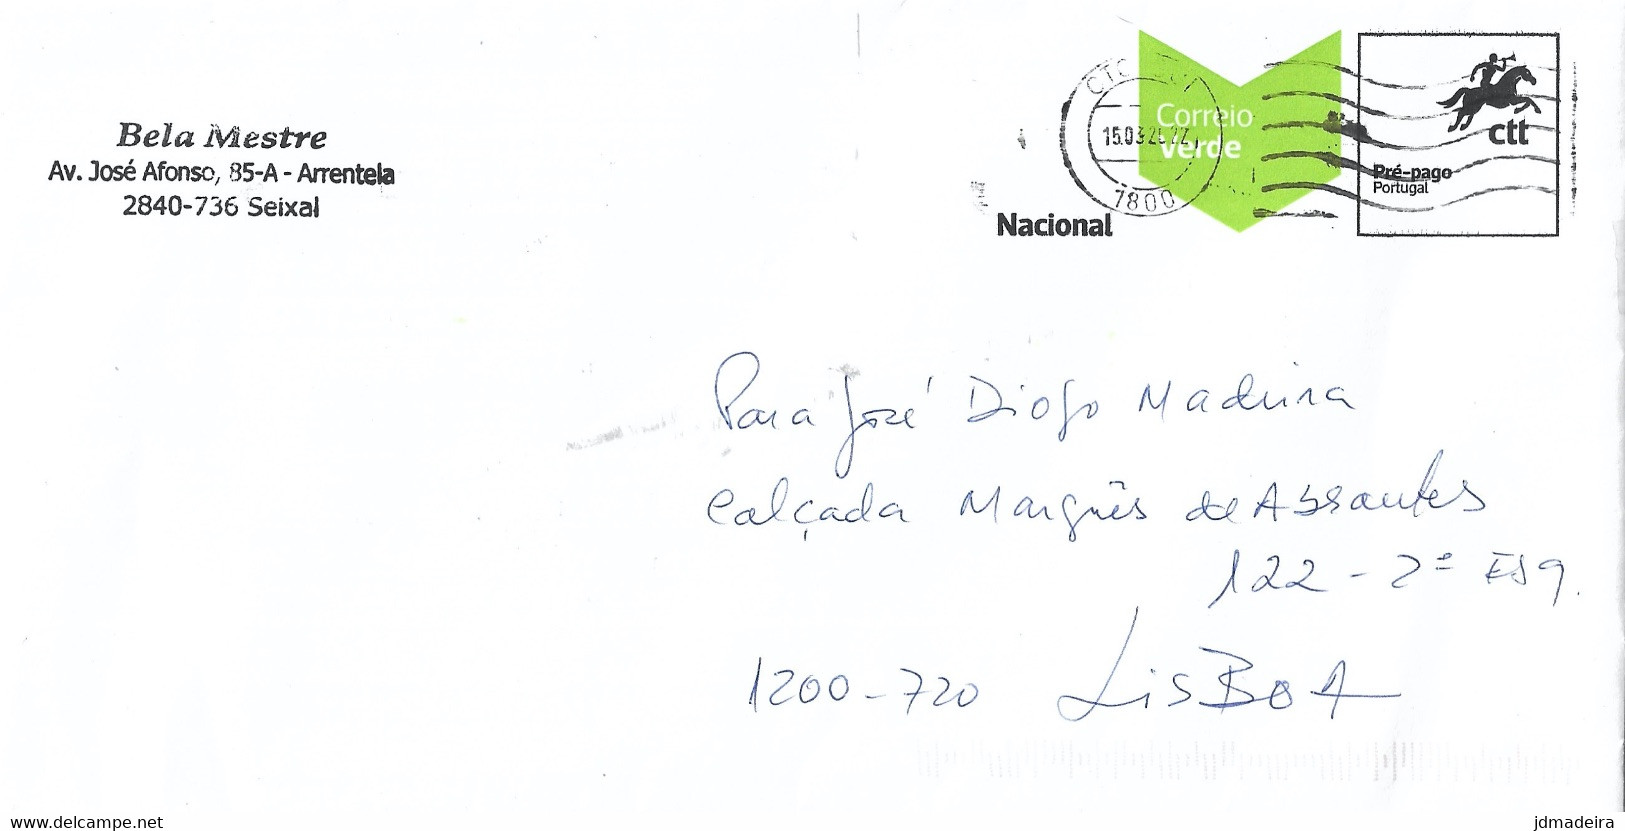 Bela Mestre
Av. José Afonso, 85-A - Arrentela
2840-736 Seixal
Correio
Verde
Nacional
7800
ctt
Pré-pago
Portugal
Para José Diogo Madeira
Calçada Marquês de Abrantes
122 - 2º ESQ.
1200-720 LISBOA
www.delcampe.net
jdmadeira